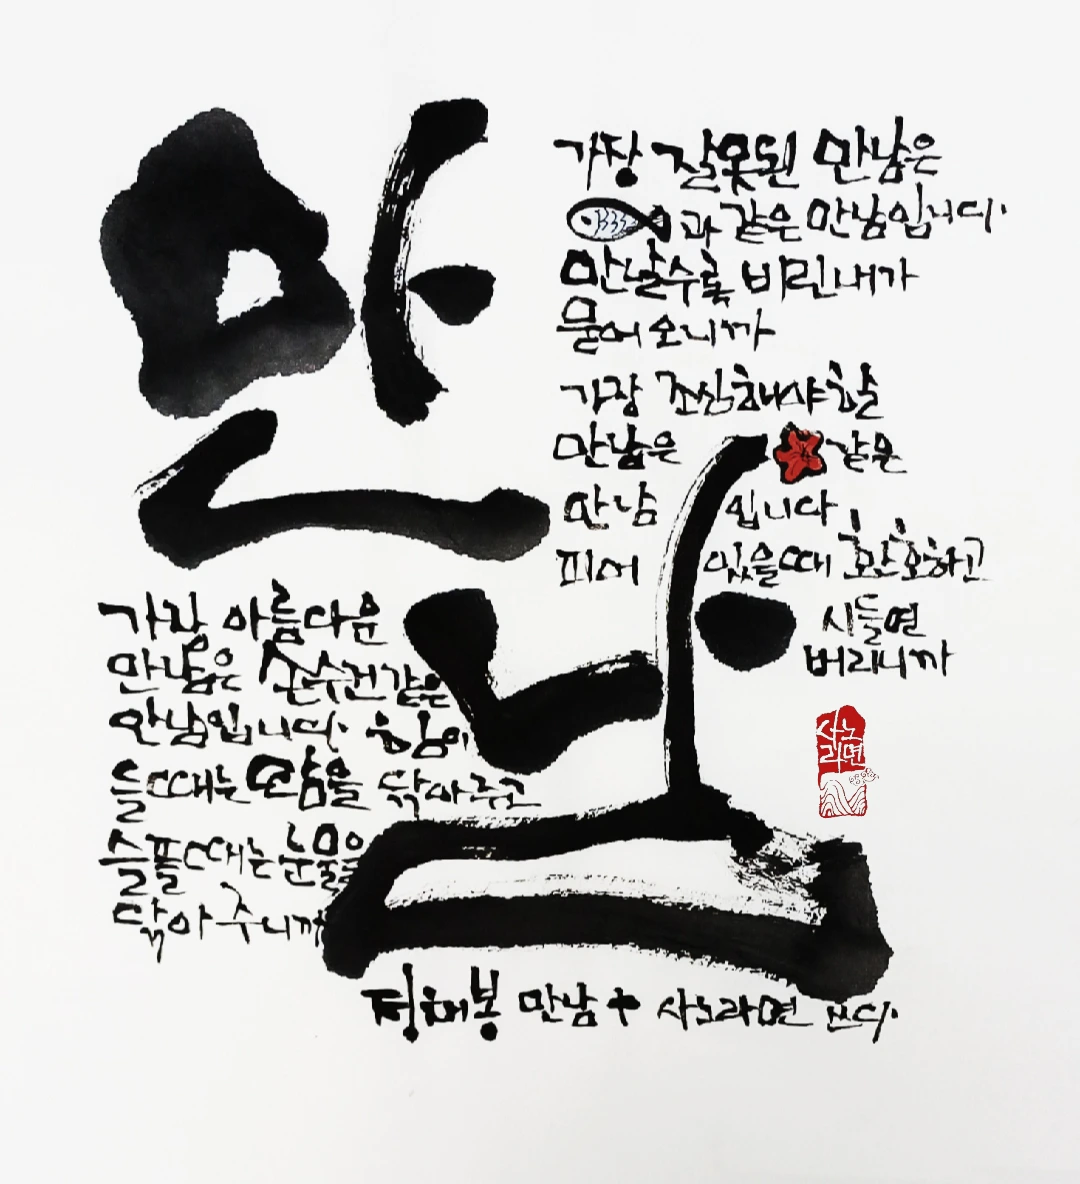 만남
가장 잘못된 만남은
과 같은 만남입니다.
만날수록 비린내가
묻어 오니까
가장 조심해야할
만남은 같은
만남 입니다
피어 있을때 환호하고
시들면
버리니까
가장 아름다운
만남은 손수건같은
만남입니다. 힘이
들때는 땀을 닦아주고
슬플때는 눈물을
닦아 주니까
정채봉 만남 中 사노라면 쓰다.
사노
라면